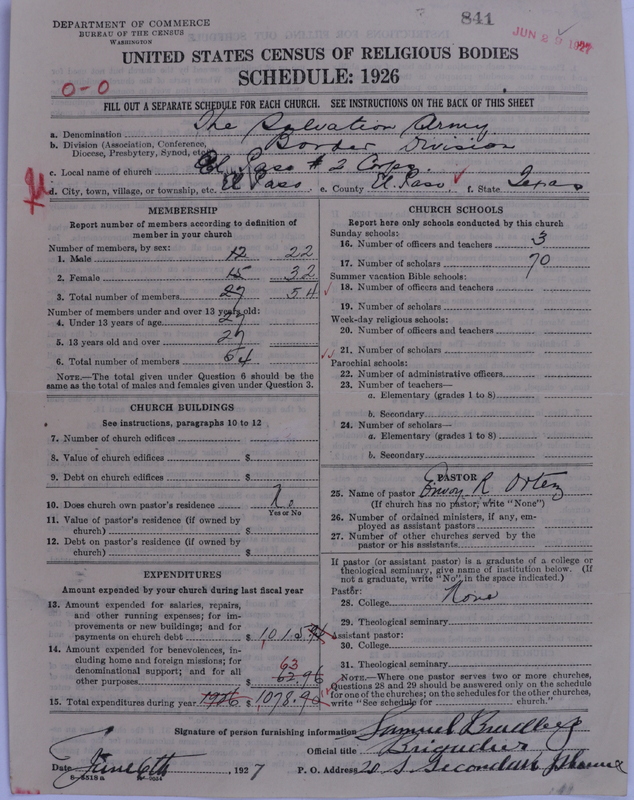 DEPARTMENT OF COMMERCE
BUREAU OF THE CENSUS
WASHINGTON
841
JUN 2 1927
UNITED STATES CENSUS OF RELIGIOUS BODIES
SCHEDULE: 1926
0-0
FILL OUT A SEPARATE SCHEDULE FOR EACH CHURCH. SEE INSTRUCTIONS ON THE BACK OF THIS SHEET
a. Denomination The Salvation Army
b. Division (Association, Conference, Diocese, Presbytery, Synod, etc.) Border Division
c. Local name of church El Paso # 2 Corps.
d. City, town, village, or township, etc. El Paso e. County El Paso f. State Texas
MEMBERSHIP
Report number of members according to definition of
member in your church
Number of members, by sex:
1. Male 12 22
2. Female 15 32
3. Total number of members 27 54
Number of members under and over 13 years old:
4. Under 13 years of age 27
5. 13 years old and over 27
6. Total number of members 54
NOTE.—The total given under Question 6 should be the
same as the total of males and females given under Question 3.
CHURCH BUILDINGS
See instructions, paragraphs 10 to 12
7. Number of church edifices
8. Value of church edifices $
9. Debt on church edifices $
10. Does church own pastor's residence No
Yes or No
11. Value of pastor's residence (if owned by
church) $
12. Debt on pastor's residence (if owned by
church) $
EXPENDITURES
Amount expended by your church during last fiscal year
13. Amount expended for salaries, repairs,
and other running expenses; for im-
provements or new buildings; and for
payments on church debt $ 1,015.94
14. Amount expended for benevolences, in-
cluding home and foreign missions; for
denominational support; and for all
other purposes $ 62.96
63
15. Total expenditures during year 1926 $ 1078.90
CHURCH SCHOOLS
Report here only schools conducted by this church
Sunday schools:
16. Number of officers and teachers 3
17. Number of scholars 70
Summer vacation Bible schools:
18. Number of officers and teachers
19. Number of scholars
Week-day religious schools:
20. Number of officers and teachers
21. Number of scholars
Parochial schools:
22. Number of administrative officers
23. Number of teachers—
a. Elementary (grades 1 to 8)
b. Secondary
24. Number of scholars—
a. Elementary (grades 1 to 8)
b. Secondary
PASTOR
25. Name of pastor Envoy R. Ortez
(If church has no pastor, write "None")
26. Number of ordained ministers, if any, em-
ployed as assistant pastors
27. Number of other churches served by the
pastor or his assistants
If pastor (or assistant pastor) is a graduate of a college or
theological seminary, give name of institution below. (If
not a graduate, write "No" in the space indicated.)
Pastor:
28. College None
29. Theological seminary
Assistant pastor:
30. College
31. Theological seminary
NOTE.—Where one pastor serves two or more churches,
Questions 28 and 29 should be answered only on the schedule
for one of the churches; on the schedules for the other churches,
write "See schedule for church."
Signature of person furnishing information Samuel Bradley
Official title Brigadier
Date June 6th, 1927 P. O. Address 20 S. Second Ave